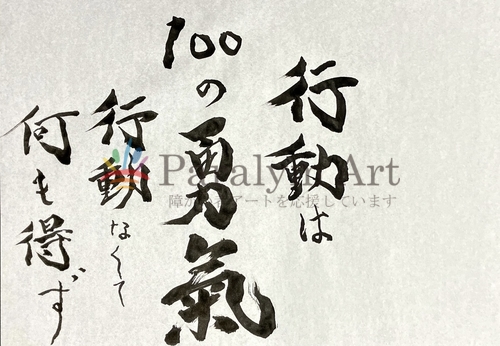 行動は
100の勇氣
行動なくて
何も得ず
Paralym Art
障がい者アートを応援しています